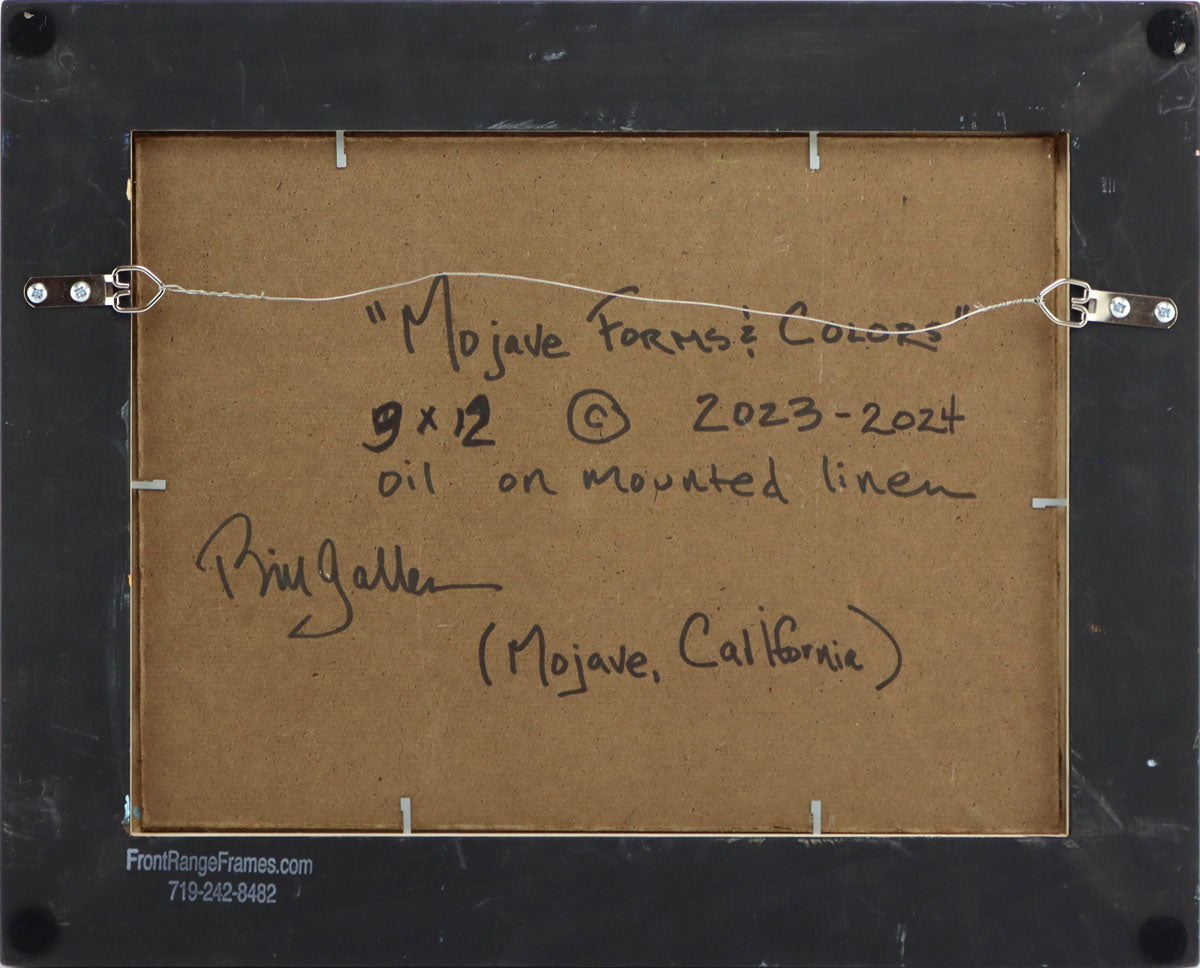 "Mojave Forms & Colors"
9 x 12 © 2023-2024
oil on mounted linen
Bill Gallen
(Mojave, California)
FrontRangeFrames.com
719-242-8482